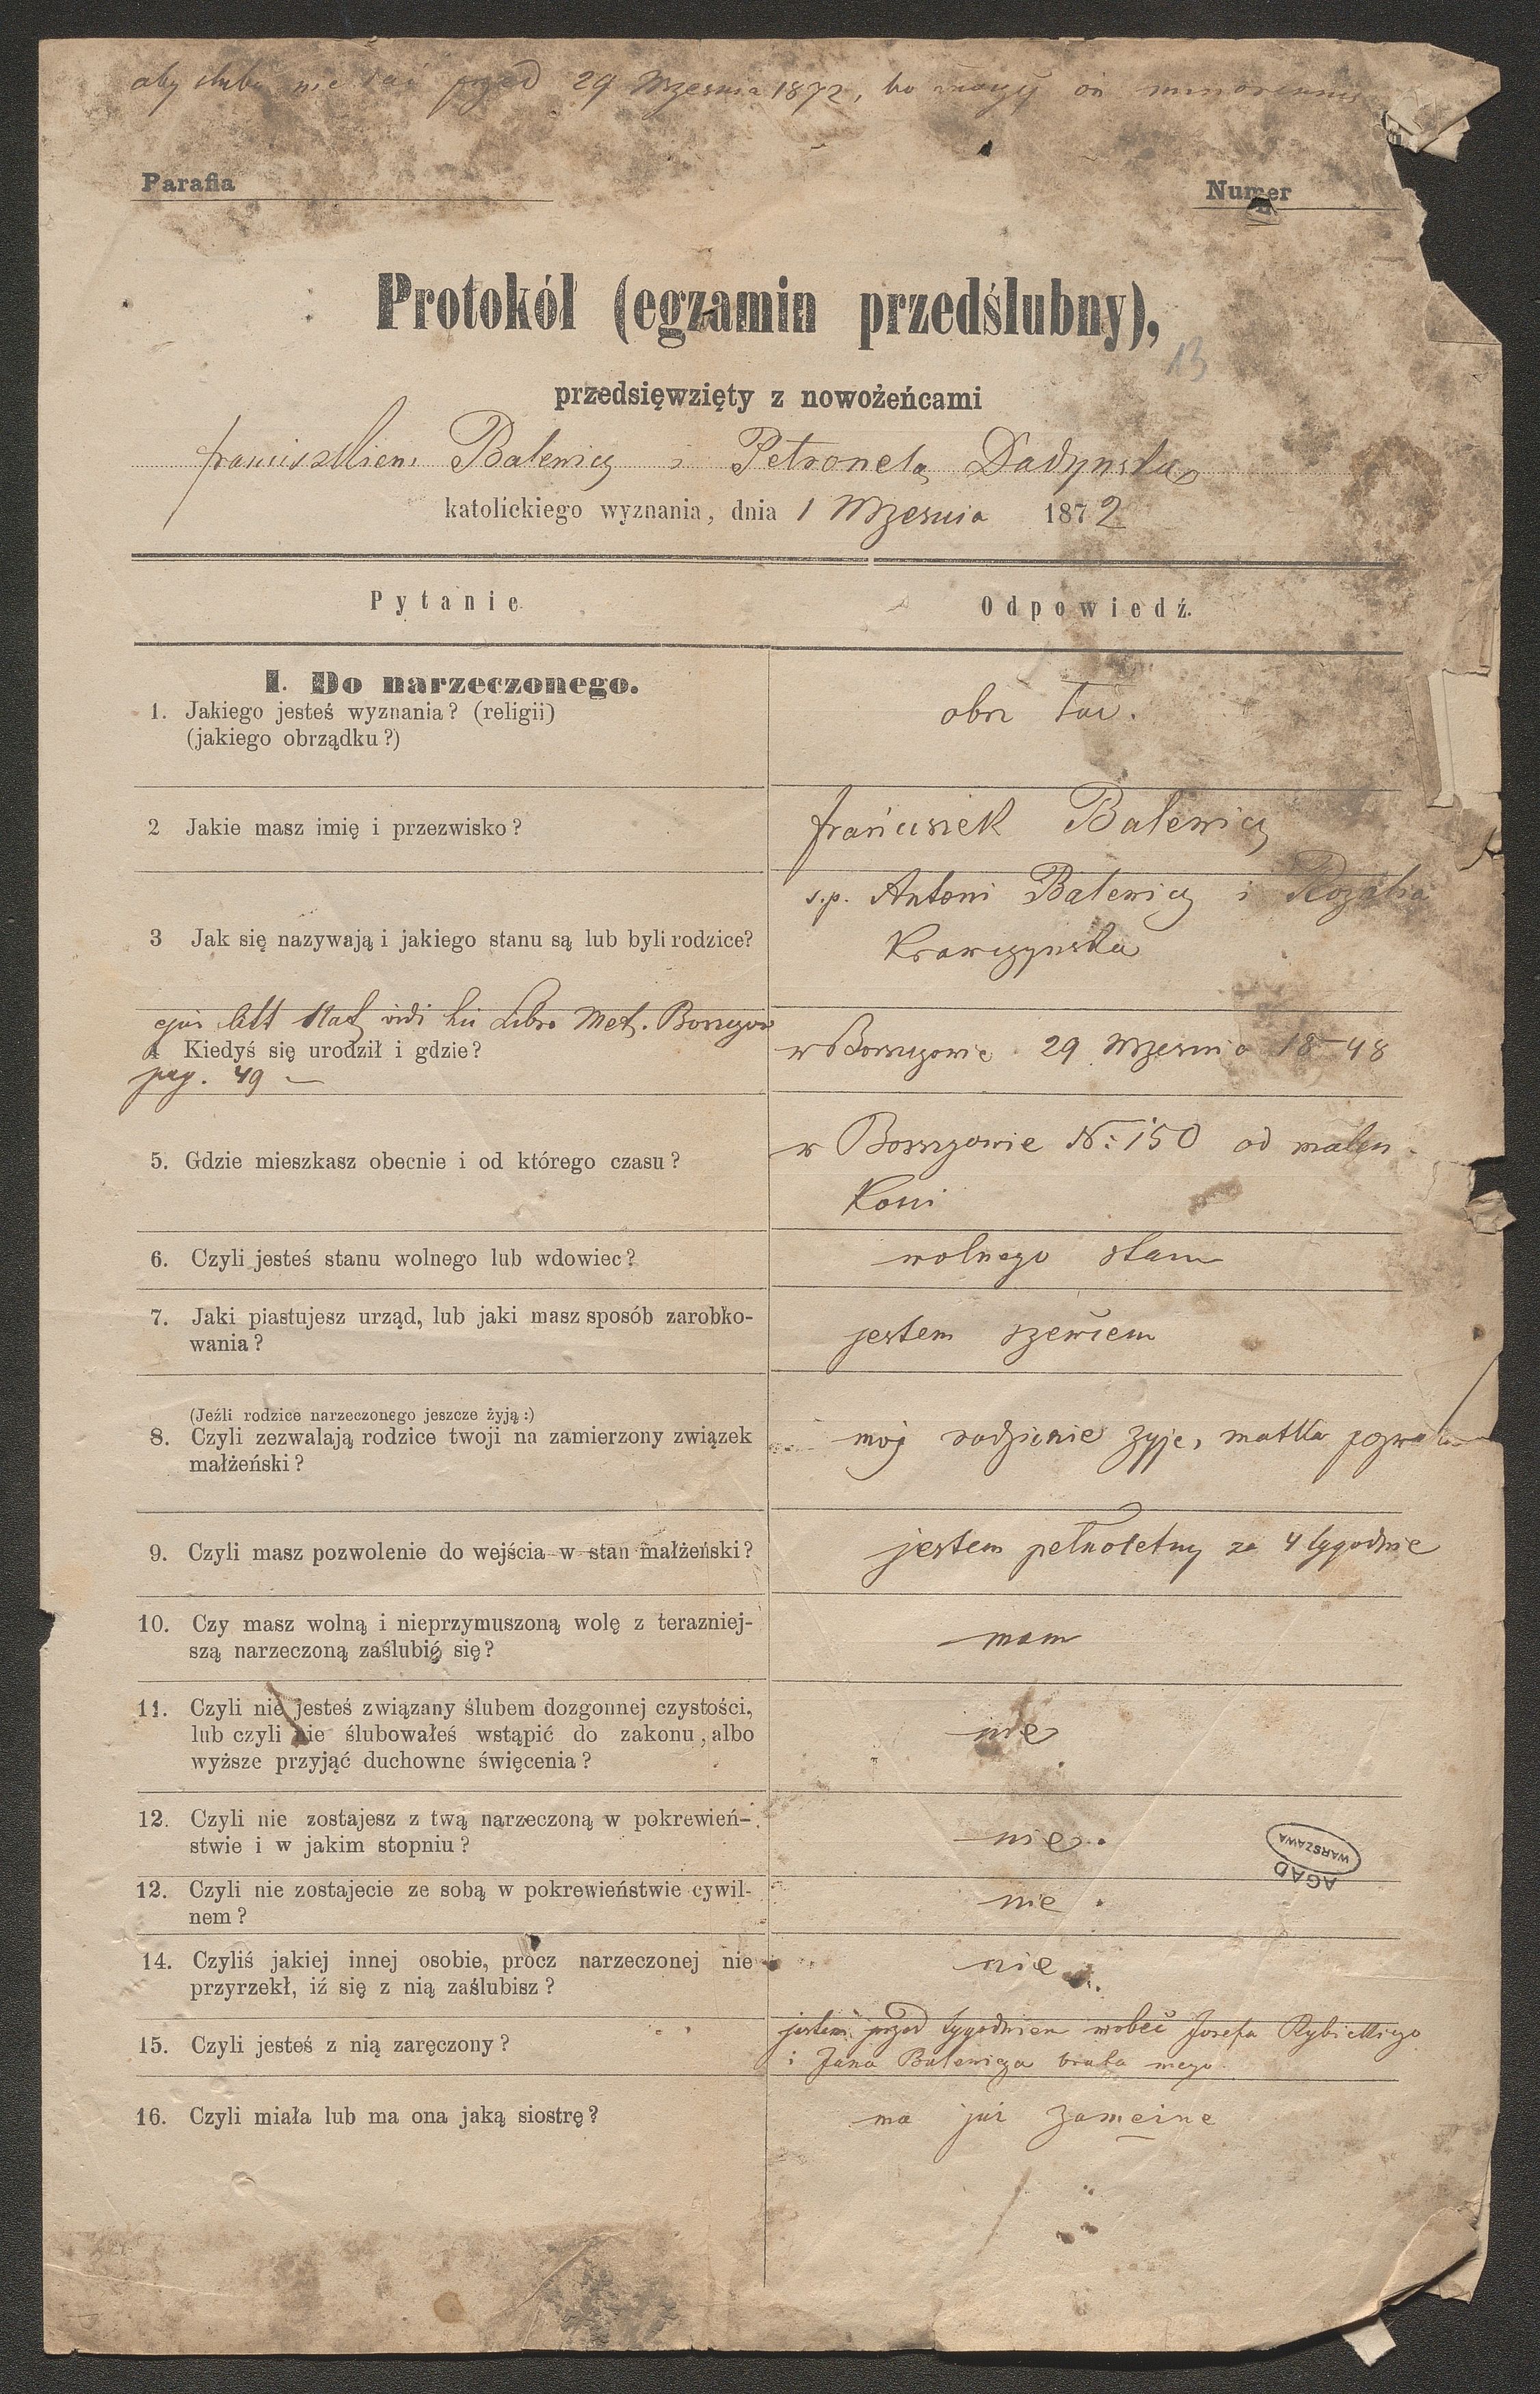 aby ślubu nie dać przed 29 Września 1872, bo
Parafia
Numer
Protokół (egzamin przedślubny),
13
przedsięwzięty z nowożeńcami
franciszkiem Balewicz i Petronelą Dadyńską
katolickiego wyznania, dnia 1 Września 1872
Pytanie
Odpowiedź.
I. Do narzeczonego.
1. Jakiego jesteś wyznania? (religii)
(jakiego obrządku?)
obrz łac.
2 Jakie masz imię i przezwisko?
franciszek Balewicz
3 Jak się nazywają i jakiego stanu są lub byli rodzice?
s.p. Antoni Balewicz i Rozalia
Krawczynska
vidi Libro Met. Borszczow
4 Kiedyś się urodził i gdzie?
pag. 49 —
w Borszczowie 29 Września 1848
5. Gdzie mieszkasz obecnie i od którego czasu?
w Borszczowie N: 150 od maleń
kości
6. Czyli jesteś stanu wolnego lub wdowiec?
wolnego stanu
7. Jaki piastujesz urząd, lub jaki masz sposób zarobko-
wania?
jestem szewcem
(Jeźli rodzice narzeczonego jeszcze żyją:)
8. Czyli zezwalają rodzice twoji na zamierzony związek
małżeński?
moj rodzicie żyje, matka pozwala
9. Czyli masz pozwolenie do wejścia w stan małżeński?
jestem pełnoletny za 4 tygodnie
10. Czy masz wolną i nieprzymuszoną wolę z terazniej-
szą narzeczoną zaślubić się?
mam
11. Czyli nie jesteś związany ślubem dozgonnej czystości,
lub czyli nie ślubowałeś wstąpić do zakonu, albo
wyższe przyjąć duchowne święcenia?
nie
12. Czyli nie zostajesz z twą narzeczoną w pokrewień-
stwie i w jakim stopniu?
nie.
AGAD
WARSZAWA
12. Czyli nie zostajecie ze sobą w pokrewieństwie cywil-
nem?
nie.
14. Czyliś jakiej innej osobie, prócz narzeczonej nie
przyrzekł, iż się z nią zaślubisz?
nie.
15. Czyli jesteś z nią zaręczony?
jestem przed tygodniem wobec Josefa Rybickiego
i Jana Balewicza brata mego
16. Czyli miała lub ma ona jaką siostrę?
ma już zameżne